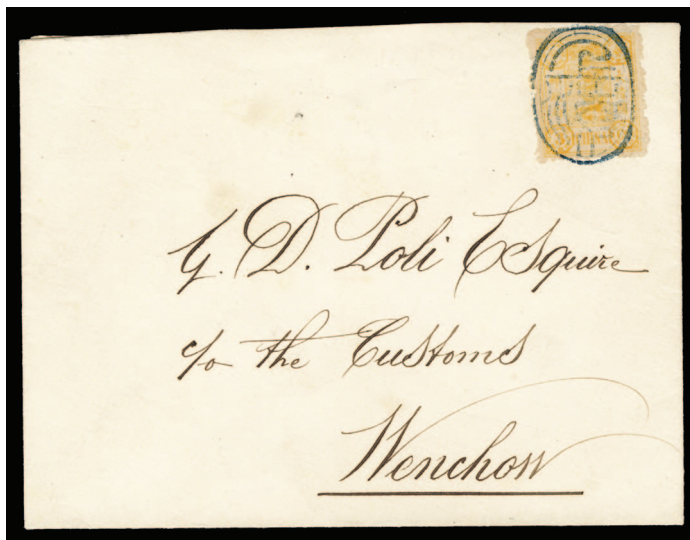 G. D. Poli Esquire
c/o the Customs
Wenchow